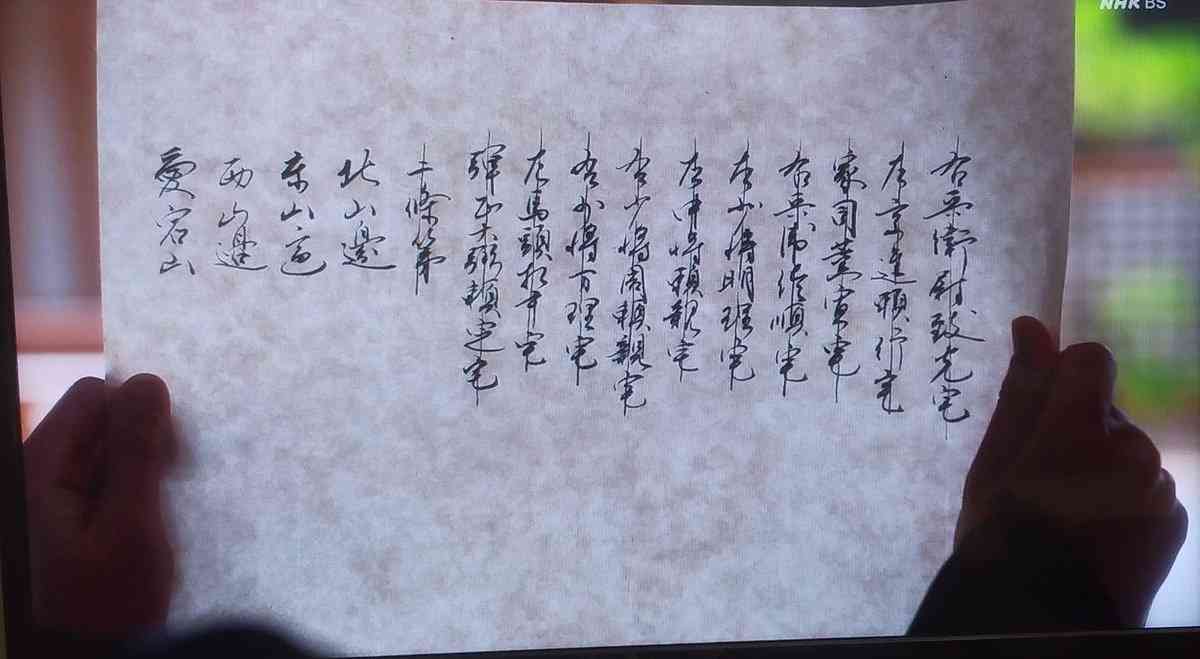 NHK BS
右兵衛尉致光宅
左京進頼行宅
家司董宣宅
右兵衛佐順宅
左少将明理宅
左中将頼親宅
右少将周頼親宅
右少将方理宅
左馬頭相尹宅
弾正大弼頼定宅
二條第
北山邊
東山邊
西山邊
愛宕山